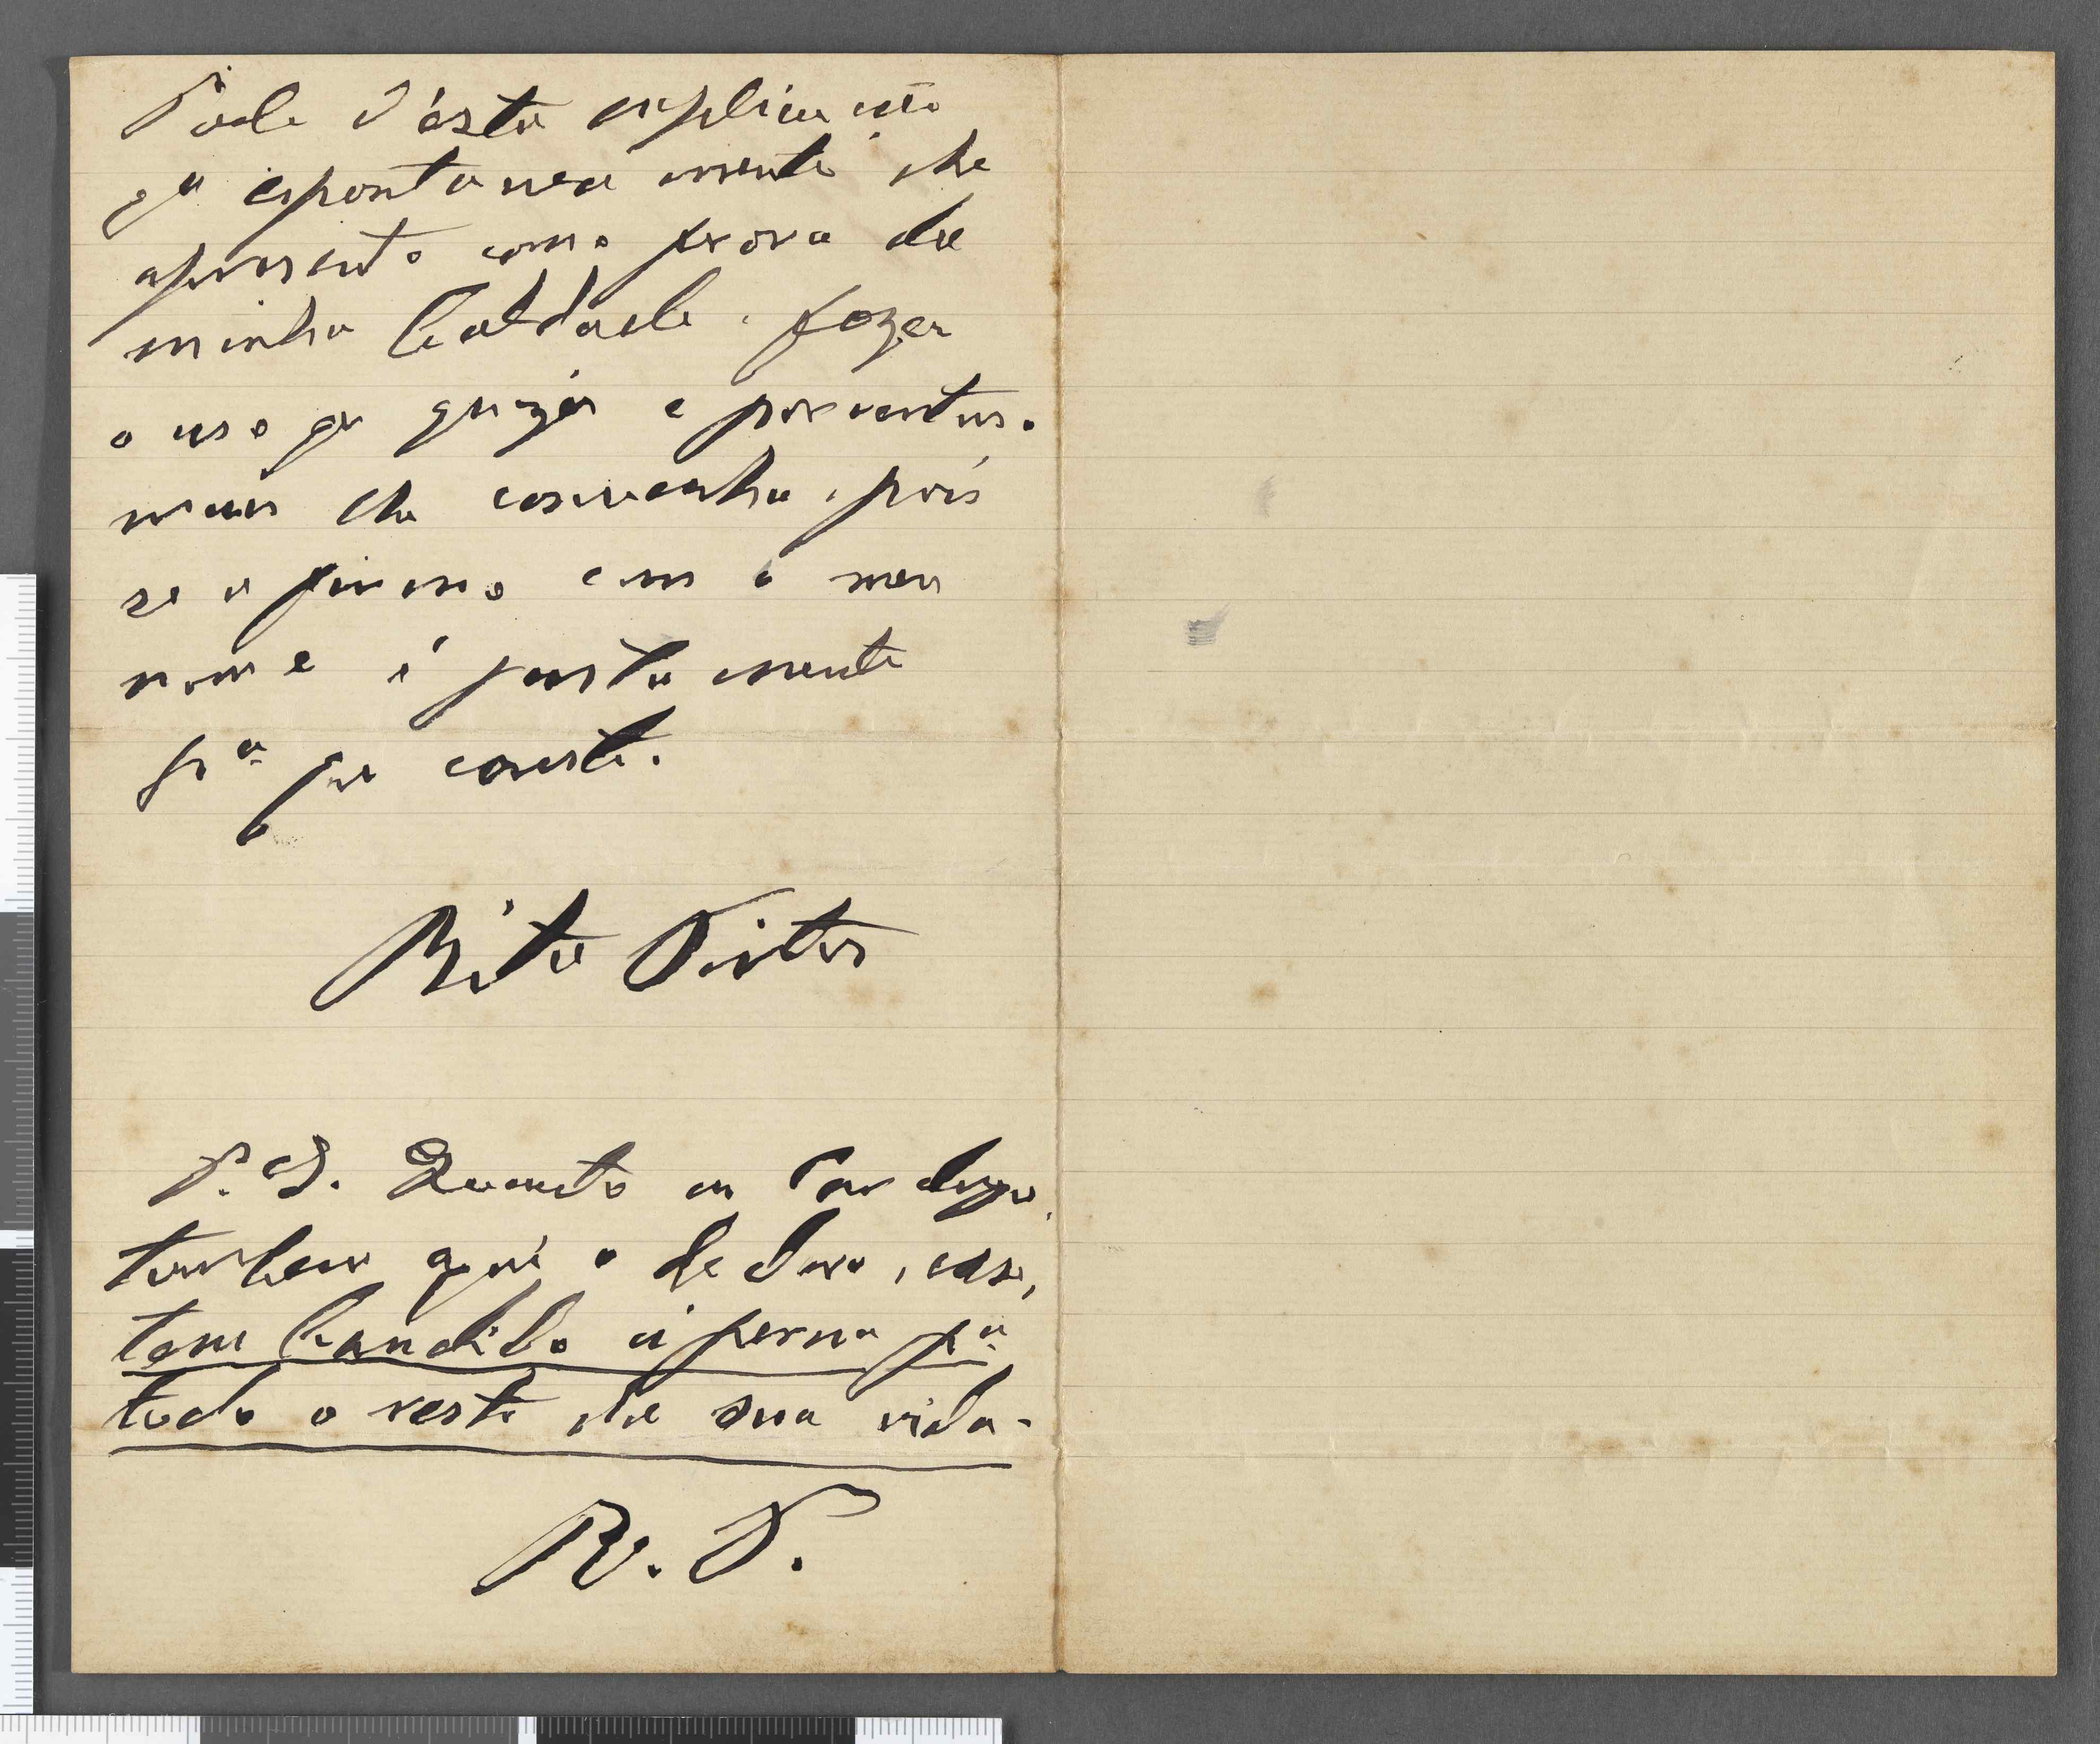 Póde d'ésta explicação
qe espontanea mente lhe
apresento como prova de
minha lealdade, fazer
o uso qe quizér e porventura
mais lhe convenha, pois
se a firmo com o meu
nome é justa mente
pª que conste.
Rita Pinto
P.S. Quanto ao
tambem aqui o declaro,
tem Candido á perna pª
todo o resto de sua vida.
R. P.